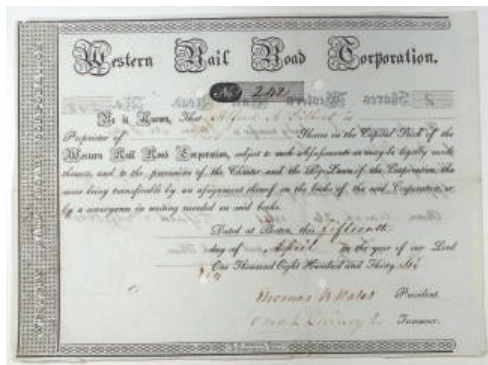 Western Rail Road Corporation.
No 242
Be it Known, That Alfred A. Gilbert is
Proprietor of Shares in the Capital Stock of the
Western Rail Road Corporation, subject to such Assessments as may be legally made
thereon, and to the provisions of the Charter and the Bye-Laws of the Corporation, the
same being transferable by an assignment thereof on the books of the said Corporation, or
by a conveyance in writing recorded on said books.
Dated at Boston, this fifteenth
day of April in the year of our Lord
One Thousand Eight Hundred and Thirty Six
Thomas B Wales President
Treasurer.